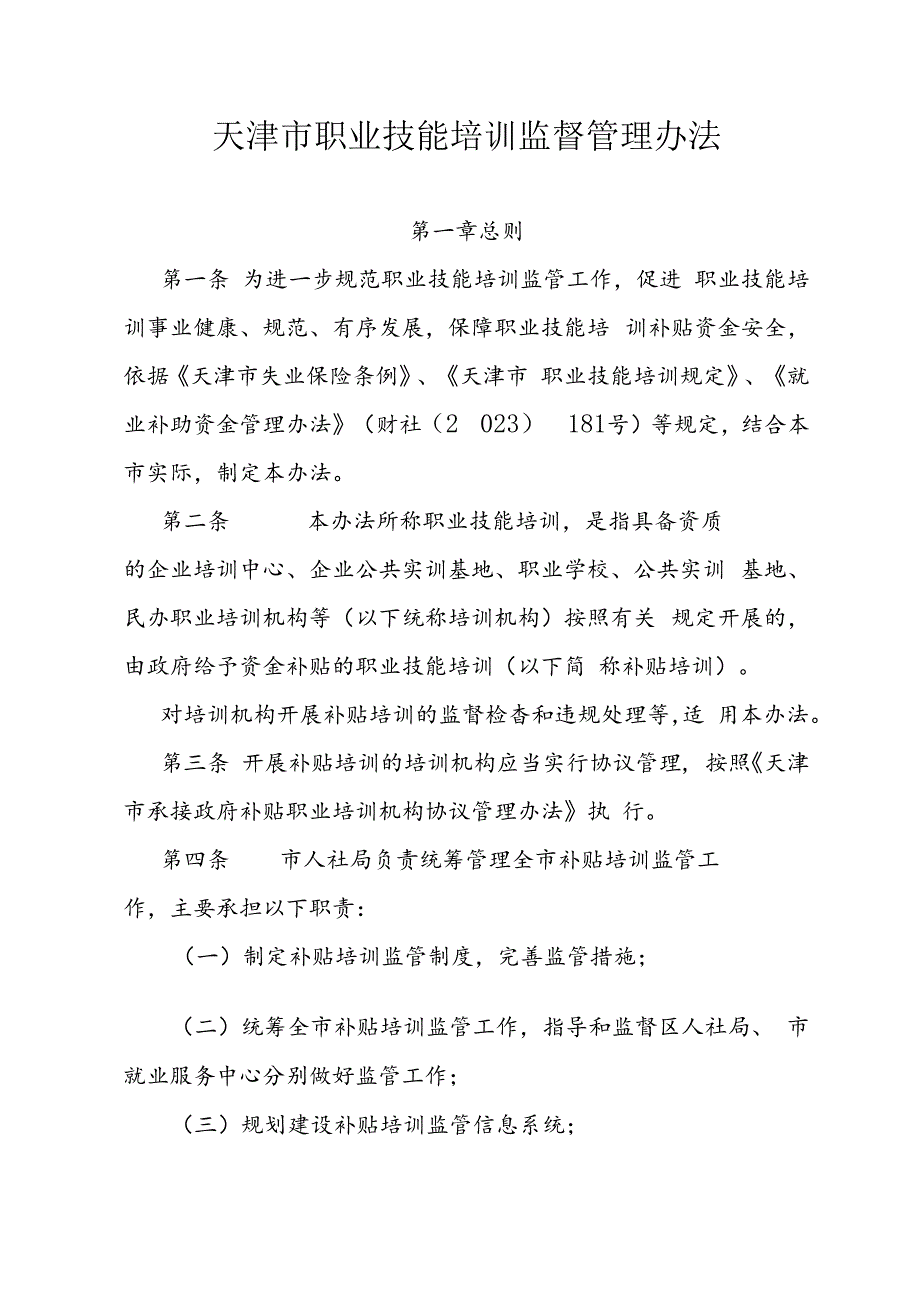 天津市职业技能培训监督管理办法
第一章总则
第一条 为进一步规范职业技能培训监管工作，促进 职业技能培
训事业健康、规范、有序发展，保障职业技能培 训补贴资金安全，
依据《天津市失业保险条例》、《天津市 职业技能培训规定》、《就
业补助资金管理办法》（财社（2 023） 181号）等规定，结合本
市实际，制定本办法。
第二条 本办法所称职业技能培训，是指具备资质
的企业培训中心、企业公共实训基地、职业学校、公共实训 基地、
民办职业培训机构等（以下统称培训机构）按照有关 规定开展的，
由政府给予资金补贴的职业技能培训（以下简 称补贴培训）。
对培训机构开展补贴培训的监督检查和违规处理等，适 用本办法。
第三条 开展补贴培训的培训机构应当实行协议管理，按照《天津
市承接政府补贴职业培训机构协议管理办法》执 行。
第四条 市人社局负责统筹管理全市补贴培训监管工
作，主要承担以下职责：
（一）制定补贴培训监管制度，完善监管措施；
（二）统筹全市补贴培训监管工作，指导和监督区人社局、 市
就业服务中心分别做好监管工作；
（三）规划建设补贴培训监管信息系统；